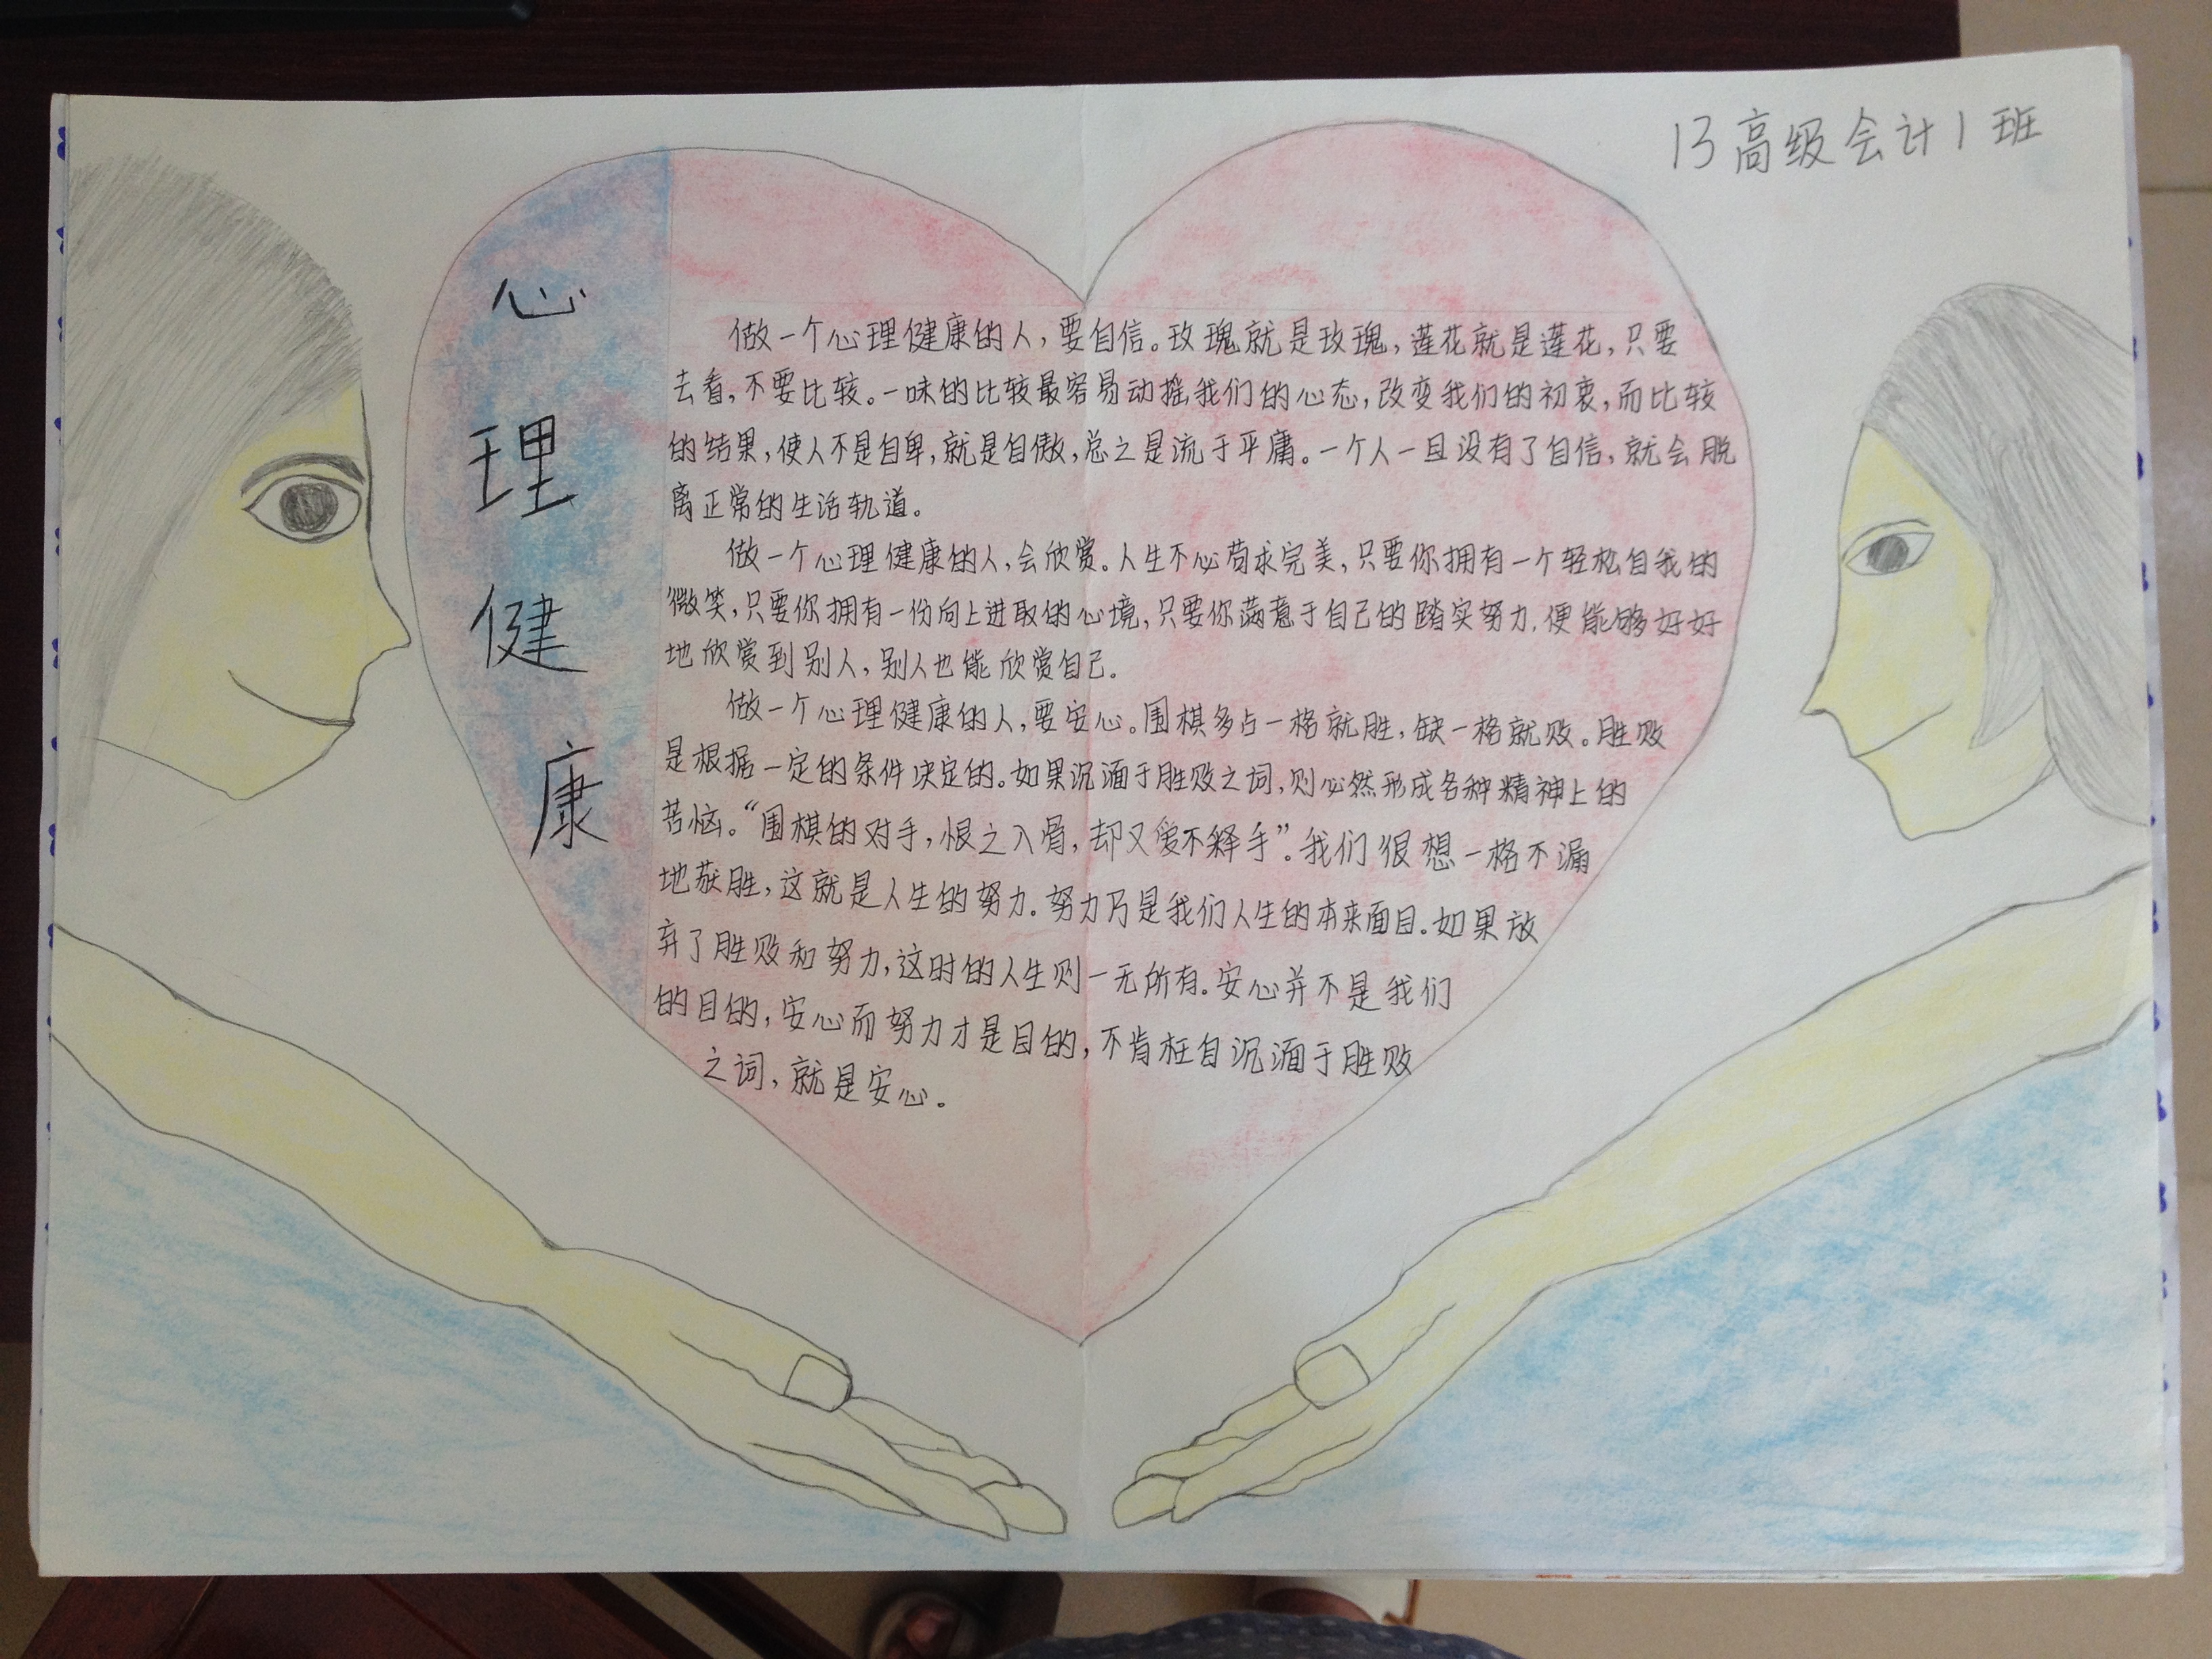 13高级会计1班
心
理
健
康
做一个心理健康的人,要自信。玫瑰就是玫瑰,莲花就是莲花,只要
去看,不要比较。一味的比较最容易动摇我们的心态,改变我们的初衷,而比较
的结果,使人不是自卑,就是自傲,总之是流于平庸。一个人一旦没有了自信,就会脱
离正常的生活轨道。
做一个心理健康的人,会欣赏。人生不必苟求完美,只要你拥有一个轻松自我的
微笑,只要你拥有一份向上进取的心境,只要你满意于自己的踏实努力,便能够好好
地欣赏到别人,别人也能欣赏自己.
做一个心理健康的人,要安心。围棋多占一格就胜,缺一格就败。胜败
是根据一定的条件决定的。如果沉湎于胜败之词,则必然形成各种精神上的
苦恼。“围棋的对手,恨之入骨,却又爱不释手”。我们很想一格不漏
地获胜,这就是人生的努力.努力乃是我们人生的本来面目.如果放
弃了胜败和努力,这时的人生则一无所有.安心并不是我们
的目的,安心而努力才是目的,不肯枉自沉湎于胜败
之词,就是安心。